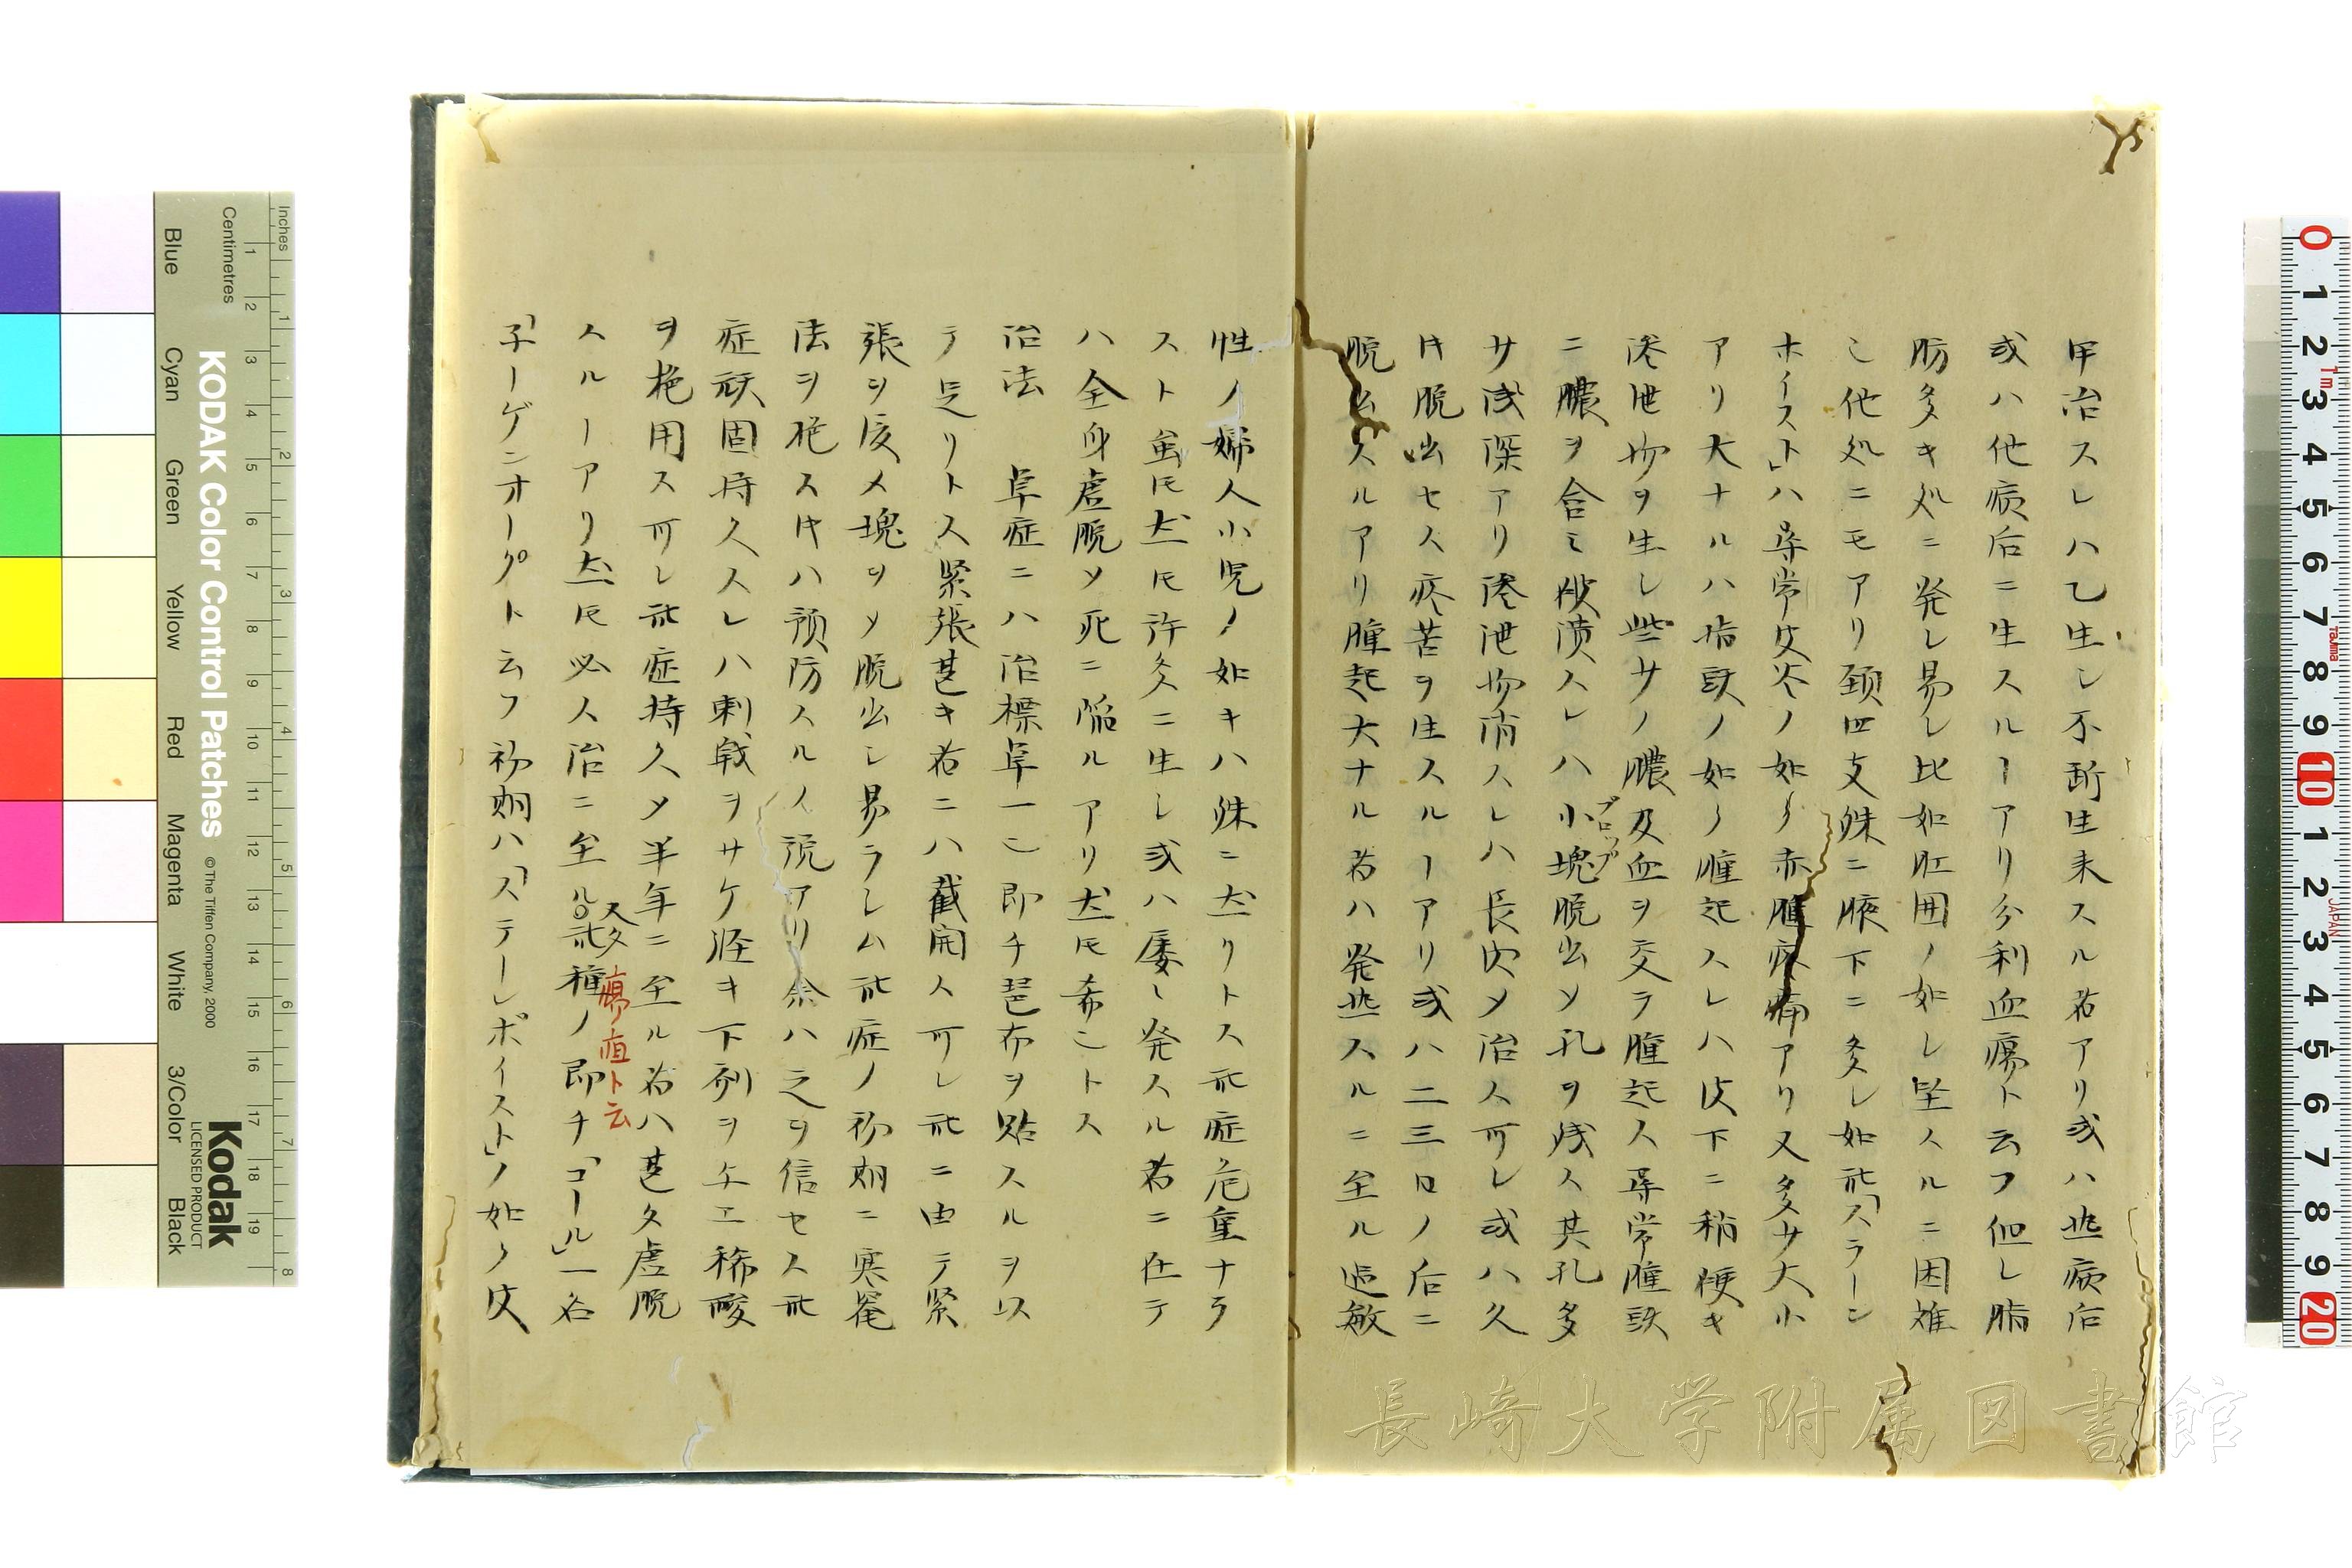 甲治スレハ乙生シ不断生来スル者アリ或ハ他病后
或ハ他病后ニ生スルヿアリ分利血瘍ト云フ但シ脂
肪多キ処ニ発シ易シ比如肛囲ノ如シ坐スルニ困難
シ他処ニモアリ頚四支殊ニ腋下ニ多シ如此「スラーン
ホイスト」ハ尋常皮　ノ如ク赤腫疼痛アリ又多サ大小
アリ大ナルハ指頭ノ如ク腫起スレハ皮下ニ稍硬キ
滲泄物ヲ生シ些サノ膿及血ヲ交ヲ腫起ス尋常腫頭
ニ膿ヲ含ミ破潰スレハ小塊脱出シ孔ヲ残ス其孔多
プロップ
サ浅深アリ滲泄物消スレハ長肉メ治ス可シ或ハ久
ク脱出セス疼苦ヲ生スルヿアリ或ハ二三日ノ后ニ
脱出スルアリ腫起大ナル者ハ発熱スルニ至ル過敏
性ノ婦人小児ノ如キハ殊ニ然リトス此症危重ナラ
スト虽𪜈然𪜈許多ニ生シ或ハ屡々発スル者ニ在テ
ハ全身虚脱ソ死ニ陥ルアリ然𪜈希ニトス
治法　阜症ニハ治標阜一ニ即チ琶布ヲ貼スルヲ以
テ足リトス緊張甚キ者ニハ截開ス可シ此ニ由テ緊
張ヲ寛メ塊ヲソ脱出シ易ラシム此症ノ初期ニ寒罨
法ヲ施スㇳキハ預防スルノ説アリ余ハ之ヲ信セス此
症頑固持久スレハ刺戟ヲサケ軽キ下剤ヲ与エ稀酸
ヲ施用ス可シ此症持久メ半年ニ至ル者ハ甚タ虚脱
スルヿアリ然𪜈必ス治ニ至ル○此種ノ即チ「コール」一名
又タ瘍疽ト云
「子ーゲンオーグト云フ初期ハ「ステーレポイスト」ノ如ク皮
Inches
Centimetres
KODAK Color Control Patches
© The Tiffen Company, 2000
Kodak
LICENSED PRODUCT
Blue
Cyan
Green
Yellow
Red
Magenta
White
3/Color
Black
長崎大学附属図書館